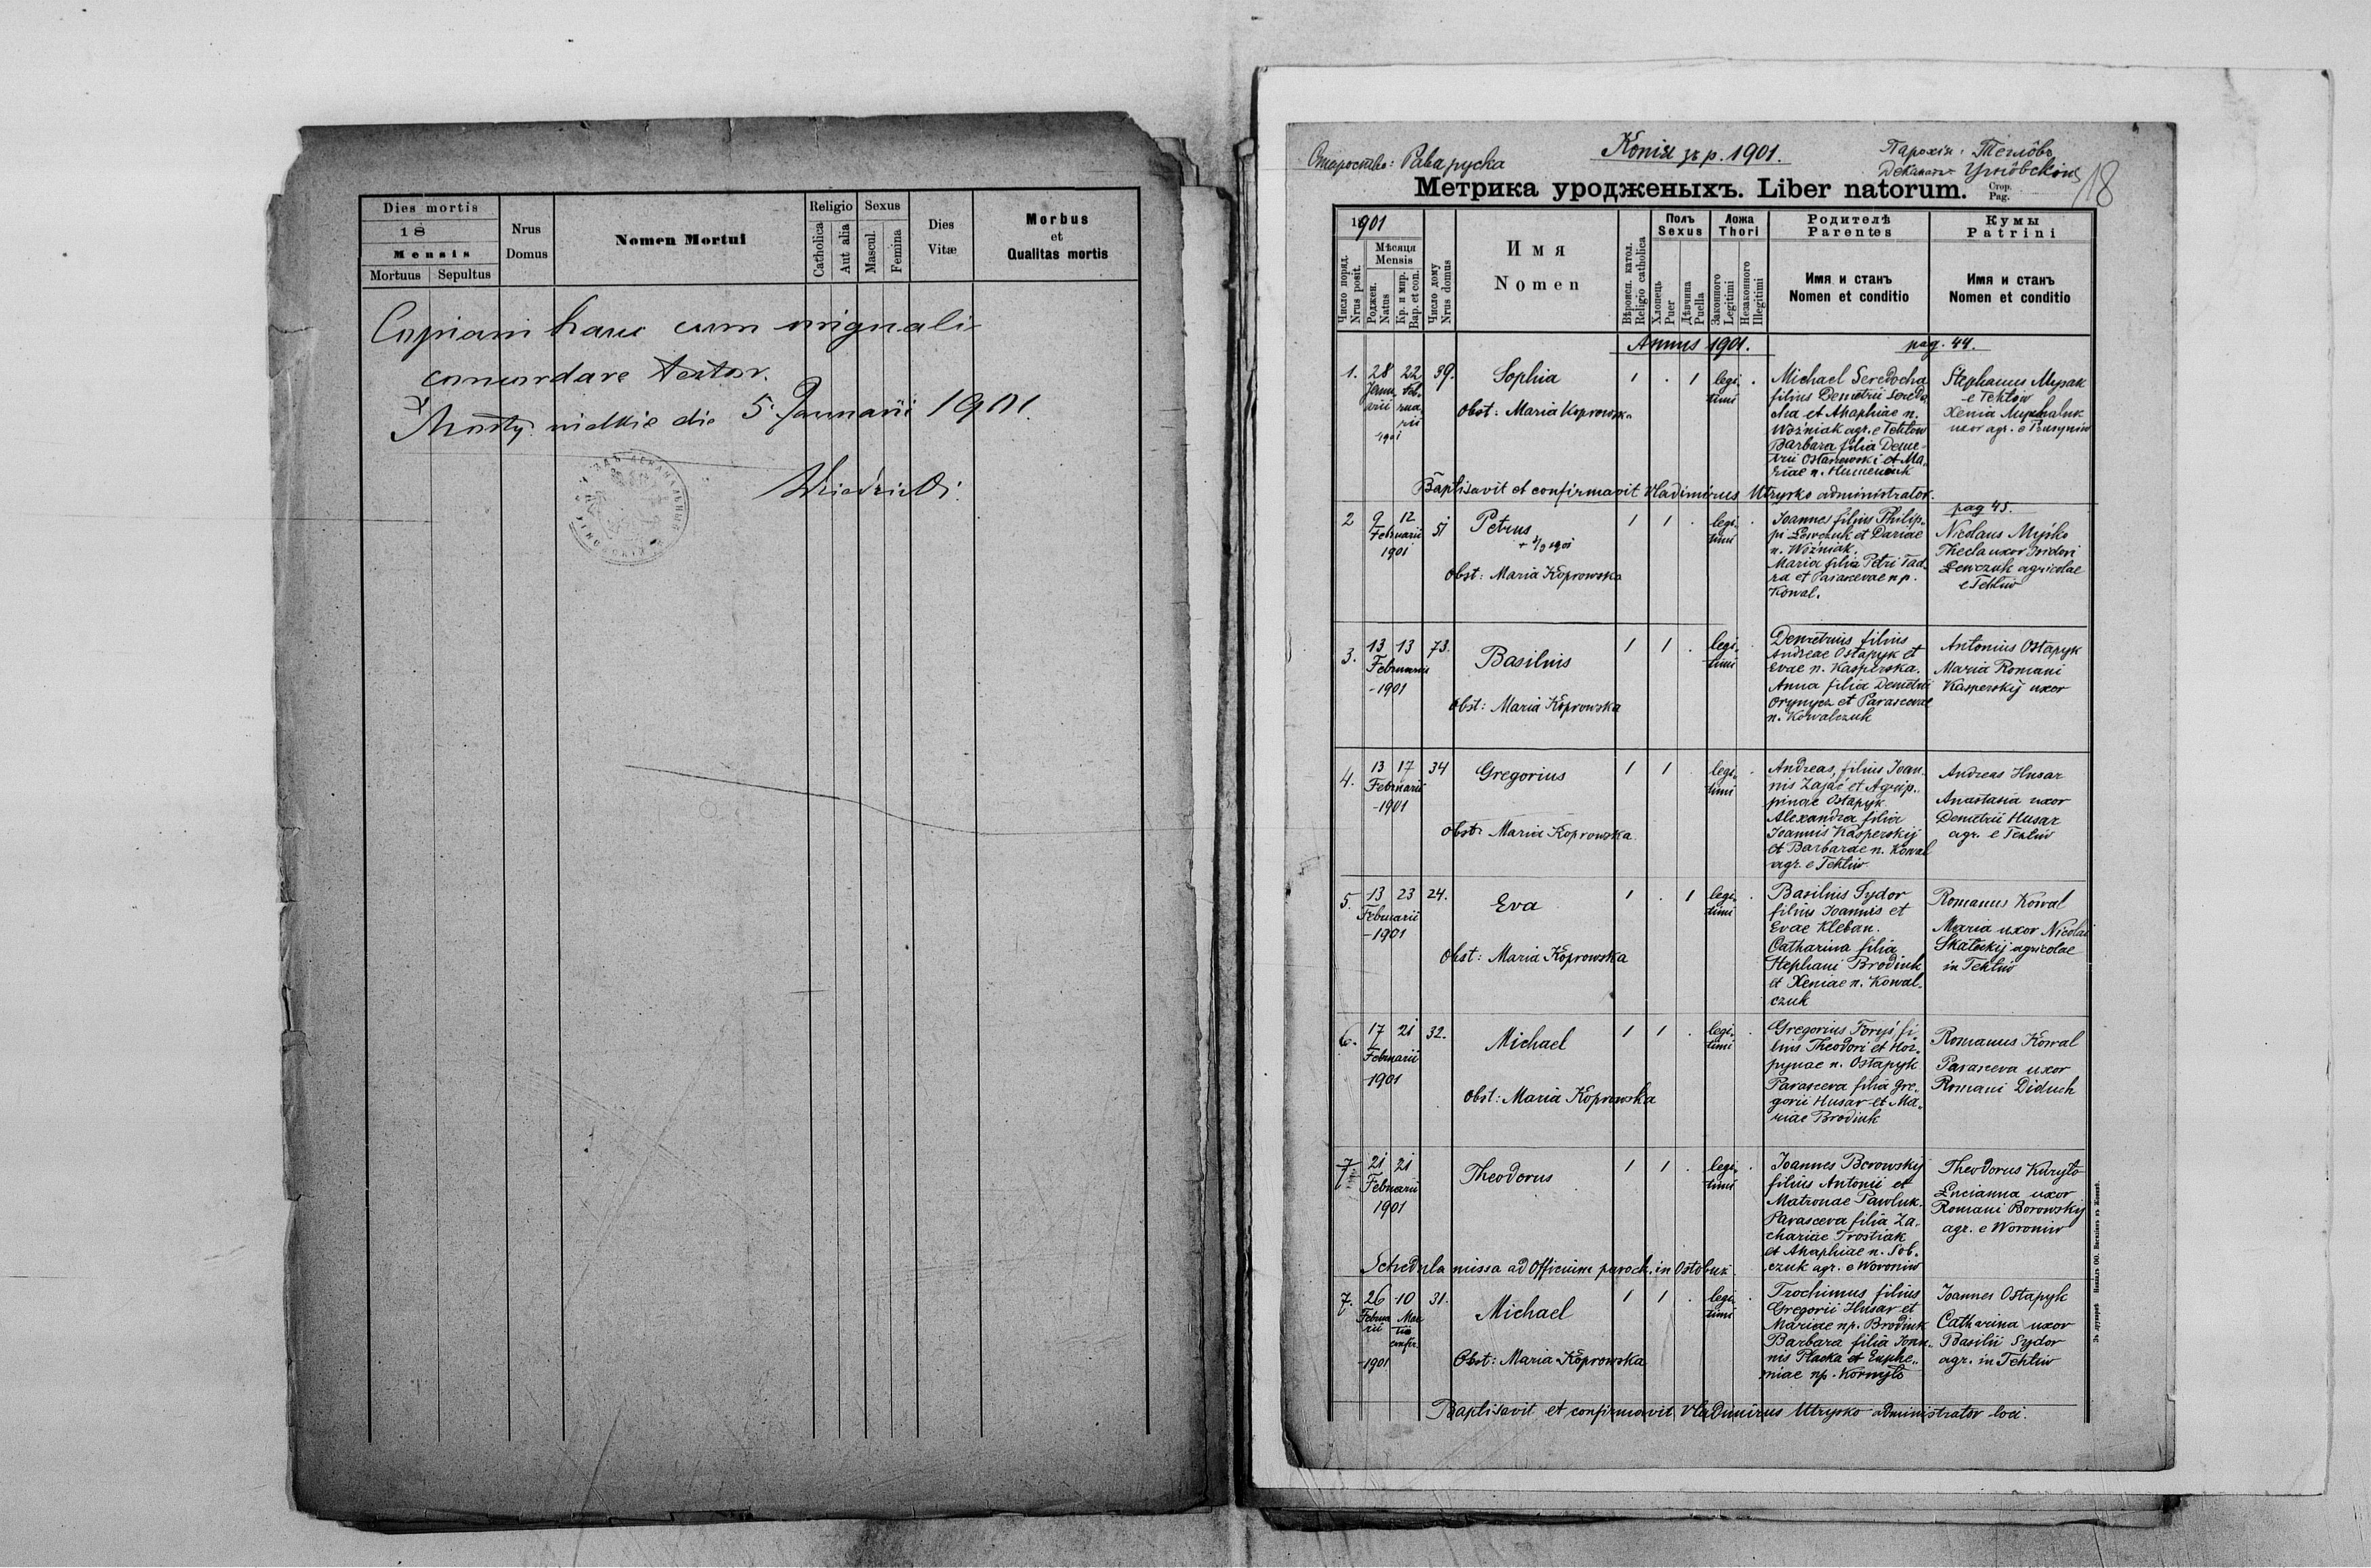 Dies mortis
18
Mensis
Mortuus
Sepultus
Nrus
Domus
Nomen Mortui
Religio
Catholica
Aut alia
Sexus
Mascul.
Femina
Dies
Vitæ
Morbus
et
Qualitas mortis
Copiam hanc cum originali
concordare testor.
Mosty wielkie die 5. Januarii 1901.
Староство: Рава руска
Копія зъ р. 1901.
Парохія: Теглôвъ
Деканатъ Угнôвскій
Метрика уродженыхъ. Liber natorum.
Стор.
Pag.
18
1901
Число поряд.
Nrus posit.
Мѣсяця
Mensis
Рожден.
Natus
Кр. и мир.
Bap. et con.
Число дому
Nrus domus
Имя
Nomen
Вѣроисп. катол.
Religio catholica
Полъ
Sexus
Хлопець
Puer
Дѣвчина
Puella
Ложа
Thori
Законного
Legitimi
Незаконного
Illegitimi
Родителѣ
Parentes
Имя и станъ
Nomen et conditio
Кумы
Patrini
Имя и станъ
Nomen et conditio
Annus 1901.
pag. 44.
1. 28 22 39. Sophia 1 . 1 legi- .
Janu- Feb- timi
arii rua-
rii
1901
Obst: Maria Koprowska
Michael Seredocha
filius Demetrii Seredo
cha et Ahaphiae n.
Woźniak agr. e Tehlow
Barbara filia Deme-
trii Ostaszewski et Ma-
riae n. Humeniuk
Stephanus Mysak
e Tehliw
Xenia Mychaluk
uxor agr. e Prusyniw
Baptisavit et confirmavit Vladimirus Utrysko administrator.
pag 45.
2 9 12 51 Petrus 1 1 . legi- .
Februarii timi
1901
Obst: Maria Koprowska
Joannes filius Philip-
pi Lewczuk et Dariae
n. Woźniak.
Maria filia Petri Fad-
ra et Parascevae n p.
Kowal.
Nicolaus Myśko
Thecla uxor Isidori
Lewczuk agricolae
e Tehliw
3. 13 13 73. Basilius 1 1 . legi-
Februarii timi
1901
Obst: Maria Koprowska
Demetrius filius
Andreae Ostapyk et
Evae n. Kasperska.
Anna filia Demetrii
Orynycz et Parascevae
n. Kowalczuk
Antonius Ostapyk
Maria Romani
Kasperskij uxor
4. 13 17 34 Gregorius 1 1 . legi- .
Februarii timi
-1901
Obst: Maria Koprowska
Andreas, filius Joan-
nis Zająć et Agrip-
pinae Ostapyk
Alexandra filia
Joannis Kasperskij
et Barbarae n. Kowal
agr. e Tehliw
Andreas Husar
Anastasia uxor
Demetrii Husar
agr. e Tehliw
5. 13 23 24. Eva 1 . 1 legi- .
Februarii timi
-1901
Obst: Maria Koprowska
Basilius Sydor
filius Joannis et
Evae Kleban.
Catharina filia
Stephani Brodiuk
et Xeniae n. Kowal-
czuk
Romanus Kowal
Maria uxor Nicolai
Skaleckij agricolae
in Tehliw
6. 17 21 32. Michael 1 1 . legi- .
Februarii timi
1901
Obst: Maria Koprowska
Gregorius Foryś fi-
lius Theodori et Hor-
pynae n. Ostapyk
Parasceva filia Gre-
gorii Husar et Ma-
riae Brodiuk
Romanus Kowal
Parasceva uxor
Romani Diduch
7 21 21 Theodorus 1 1 . legi- .
Februarii timi
1901
Joannes Borowskij
filius Antonii et
Matronae Pawluk.
Parasceva filia Za-
chariae Trostiak
et Ahaphiae n. Sob-
czuk agr. e Woroniw
Theodorus Kuryło
Lucianna uxor
Romani Borowskij
agr. e Woroniw
Schedula missa ad Officium paroch. in Ostobuż
7. 26 10 31. Michael 1 1 . legi- .
Februa Mar timi
rii tii
confir.
-1901
Obst: Maria Koprowska
Trochimus filius
Gregorii Husar et
Mariae np. Brodiuk
Barbara filia Joan-
nis Placka et Euphe-
miae np. Kornyło
Joannes Ostapyk
Catharina uxor
Basilii Sydor
agr. in Tehliw
Baptisavit et confirmavit Vladimirus Utrysko administrator loci.